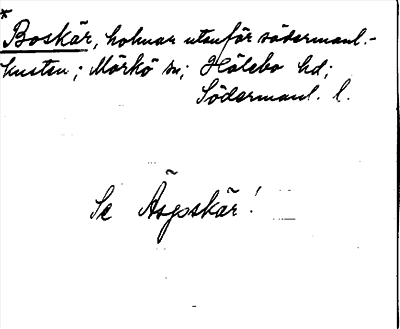 *
Boskär, holmar utanför södermanl.-
kusten; Mörkö sn; Hölebo hd;
Södermanl. l.
Se Äspskär!